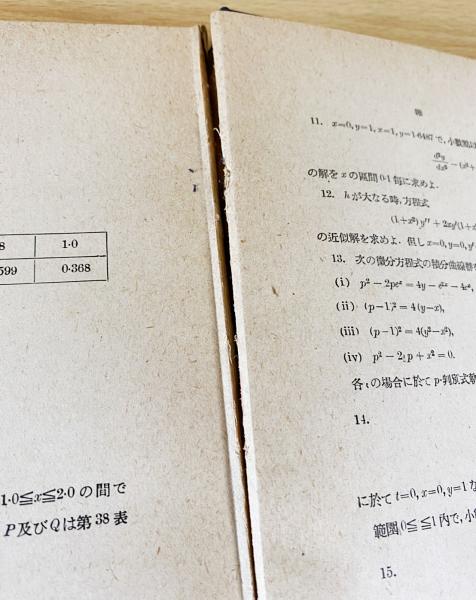 8 1·0
599 0·368
1·0≦x≦2·0 の間で
P及びQは第 38 表
雑
11. x=0, y=1, x=1, y=1·6487 で, 小数
d²y/dx² − (x²+
の解を x の区間 0·1 毎に求めよ.
12. h が大なる時, 方程式
(1+x²) y″ + 2xy′(1+x
の近似解を求めよ. 但し x=0, y=0, y′
13. 次の微分方程式の積分曲線群
(i) p² − 2peˣ = 4y − e²ˣ − 4eˣ,
(ii) (p−1)² = 4(y−x),
(iii) (p−1)² = 4(y²−x²),
(iv) p² − 2 p + x² = 0.
各 の場合に於て p-判別式
14.
に於て t=0, x=0, y=1 な
範囲 0≦ ≦1 内で, 小
15.